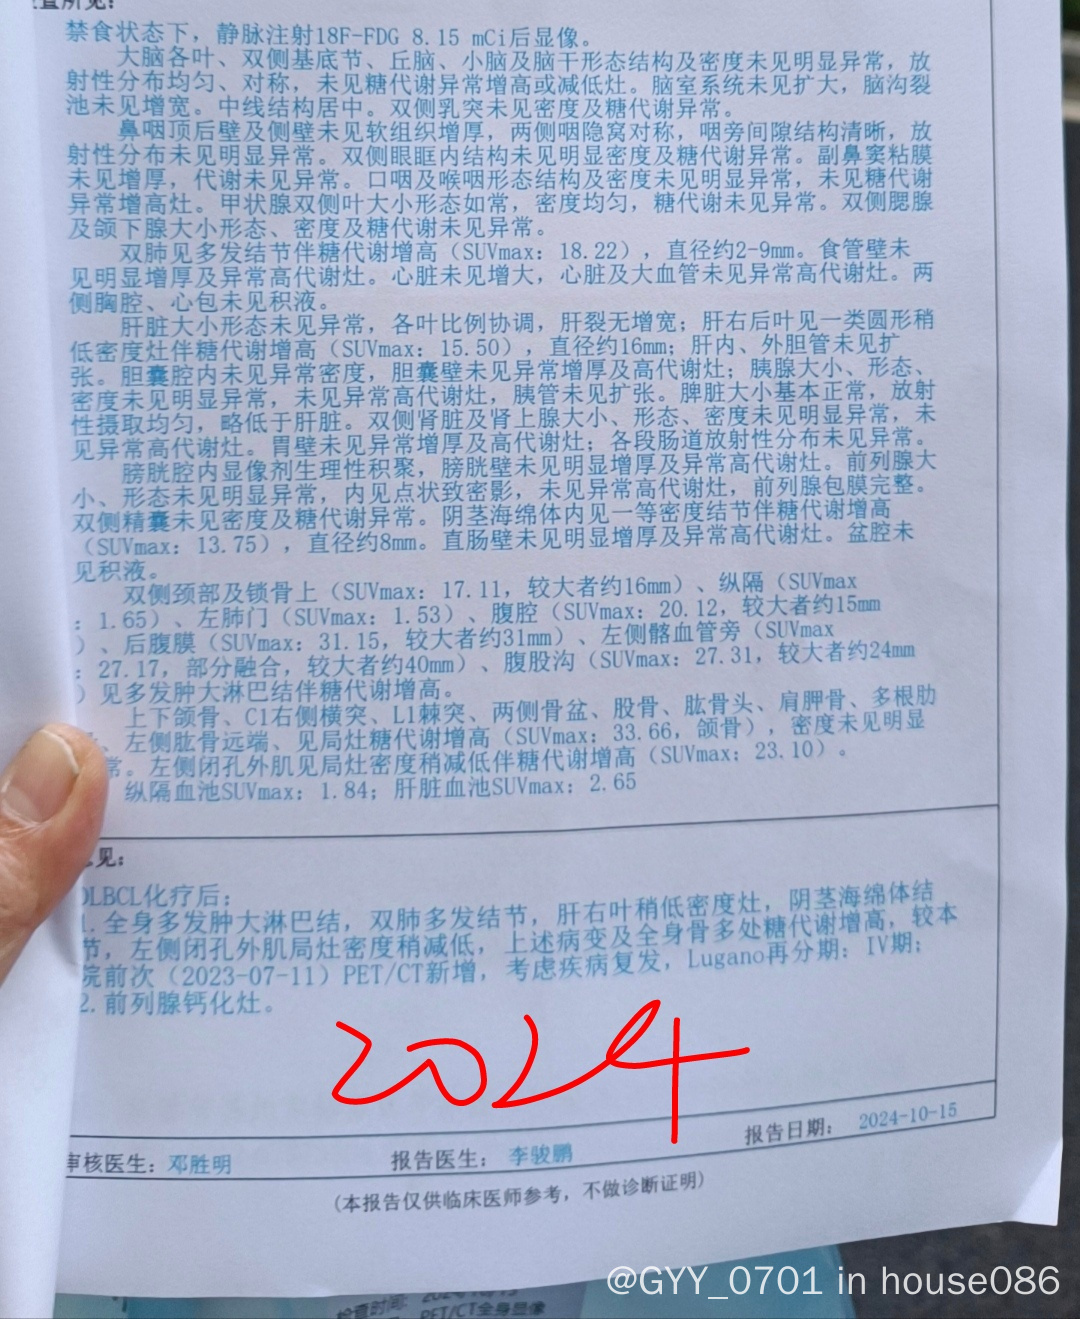 查所见:
禁食状态下，静脉注射18F-FDG 8.15 mCi后显像。
大脑各叶、双侧基底节、丘脑、小脑及脑干形态结构及密度未见明显异常，放
射性分布均匀、对称，未见糖代谢异常增高或减低灶。脑室系统未见扩大，脑沟裂
池未见增宽。中线结构居中。双侧乳突未见密度及糖代谢异常。
鼻咽顶后壁及侧壁未见软组织增厚，两侧咽隐窝对称，咽旁间隙结构清晰，放
射性分布未见明显异常。双侧眼眶内结构未见明显密度及糖代谢异常。副鼻窦粘膜
未见增厚，代谢未见异常。口咽及喉咽形态结构及密度未见明显异常，未见糖代谢
异常增高灶。甲状腺双侧叶大小形态如常，密度均匀，糖代谢未见异常。双侧腮腺
及颌下腺大小形态、密度及糖代谢未见异常。
双肺见多发结节伴糖代谢增高（SUVmax：18.22），直径约2-9mm。食管壁未
见明显增厚及异常高代谢灶。心脏未见增大，心脏及大血管未见异常高代谢灶。两
侧胸腔、心包未见积液。
肝脏大小形态未见异常，各叶比例协调，肝裂无增宽；肝右后叶见一类圆形稍
低密度灶伴糖代谢增高（SUVmax：15.50），直径约16mm；肝内、外胆管未见扩
张。胆囊腔内未见异常密度，胆囊壁未见异常增厚及高代谢灶；胰腺大小、形态、
密度未见明显异常，未见异常高代谢灶，胰管未见扩张。脾脏大小基本正常，放射
性摄取均匀，略低于肝脏。双侧肾脏及肾上腺大小、形态、密度未见明显异常，未
见异常高代谢灶。胃壁未见异常增厚及高代谢灶；各段肠道放射性分布未见异常。
膀胱腔内显像剂生理性积聚，膀胱壁未见明显增厚及异常高代谢灶。前列腺大
小、形态未见明显异常，内见点状致密影，未见异常高代谢灶，前列腺包膜完整。
双侧精囊未见密度及糖代谢异常。阴茎海绵体内见一等密度结节伴糖代谢增高
（SUVmax：13.75），直径约8mm。直肠壁未见明显增厚及异常高代谢灶。盆腔未
见积液。
双侧颈部及锁骨上（SUVmax：17.11，较大者约16mm）、纵隔（SUVmax
：1.65）、左肺门（SUVmax：1.53）、腹腔（SUVmax：20.12，较大者约15mm
）、后腹膜（SUVmax：31.15，较大者约31mm）、左侧髂血管旁（SUVmax
：27.17，部分融合，较大者约40mm）、腹股沟（SUVmax：27.31，较大者约24mm
）见多发肿大淋巴结伴糖代谢增高。
上下颌骨、C1右侧横突、L1棘突、两侧骨盆、股骨、肱骨头、肩胛骨、多根肋
、左侧肱骨远端、见局灶糖代谢增高（SUVmax：33.66，颌骨），密度未见明显
常。左侧闭孔外肌见局灶密度稍减低伴糖代谢增高（SUVmax：23.10）。
纵隔血池SUVmax：1.84；肝脏血池SUVmax：2.65
见：
DLBCL化疗后；
1. 全身多发肿大淋巴结，双肺多发结节，肝右叶稍低密度灶，阴茎海绵体结
节，左侧闭孔外肌局灶密度稍减低，上述病变及全身骨多处糖代谢增高，较本
院前次（2023-07-11）PET/CT新增，考虑疾病复发，Lugano再分期：IV期；
2. 前列腺钙化灶。
2024
审核医生：邓胜明 报告医生：李骏鹏 报告日期：2024-10-15
（本报告仅供临床医师参考，不做诊断证明）
检查时间：
PET/CT全身显像
@GYY_0701 in house086